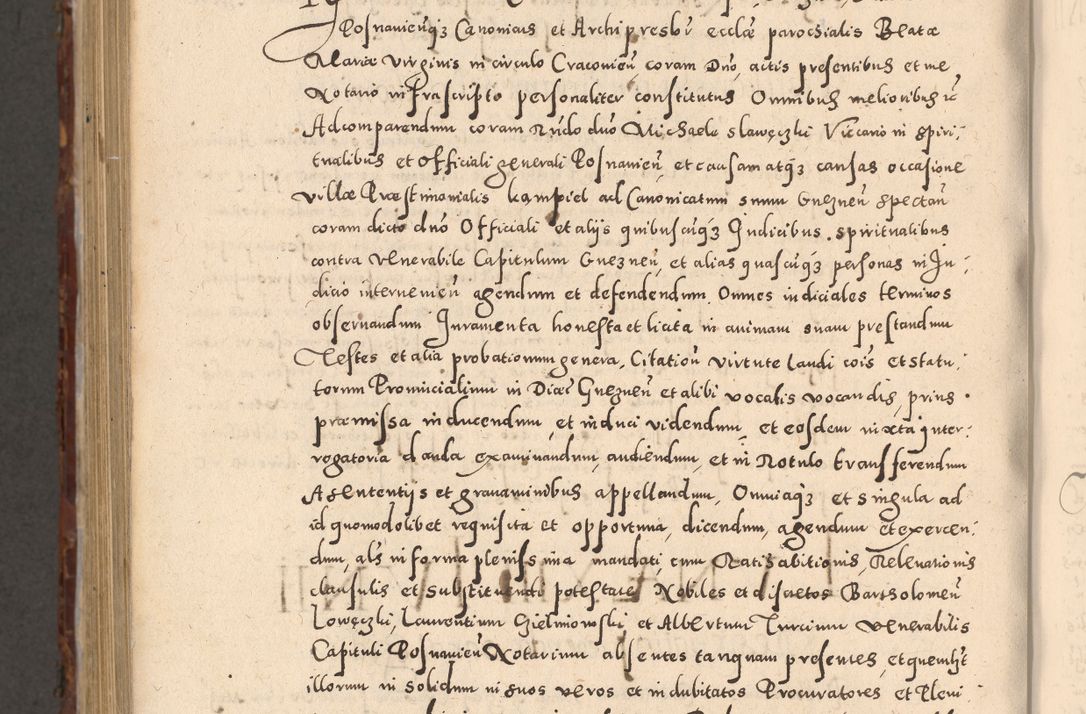 Posnanienq3 Canonicus et Archi presbr̃ ecclæ parochialis Beatæ
Mariæ Virginis in circulo Cracovien̄ coram Dn̄o, actis presentibus et me
Notario infrascripto personaliter constitutus Omnibus melioribus ic̃
Ad comparendum coram Rn̄do dn̄o Michaele Slawęczki Vicario in spiri-
tualibus et Officiali generali Posnanien̄, et causam atq3 causas occasione
villæ Præstimonialis kąmpiel ad Canonicatum suum Gneznen̄ spectan̄
coram dicto dn̄o Officiali et alijs quibuscuq3 Judicibus spiritualibus
contra venerabile Capitulum Gneznen̄, et alias quascuq3 personas in Ju-
dicio intervenien̄ agendum et defendendum. Omnes iudiciales terminos
observandum Juramenta honesta et licita in animam suam prestandum
Testes et alia probationum genera, Citation̄ virtute laudi cois̃ et statu-
torum Provincialium in Dioec̃ Gneznen̄ et alibi vocatis vocandis, prius
præmissa inducendum, et induci videndum, et eosdem iuxta inter-
rogatoria danda examinandum, audiendum, et in Rotulo transferendum
A sententijs et gravaminibus appellandum, Omniaq3 et singula ad
id quomodolibet requisita et opportuna, dicendum, agendum et exercen-
dum, als̃ in forma plenissima mandati cum Ratihabitionis, Relevationis
clausulis et substituendi potestate Nobiles et discretos Bartholomeū
Lowęczki, Laurentium Chielmowski, et Albertum Turcium Venerabilis
Capituli Posnanien̄ Notarium absentes tanquam presentes, et quemlibt̃
illorum in solidum in suos veros et indubitatos Procuratores et Pleni-